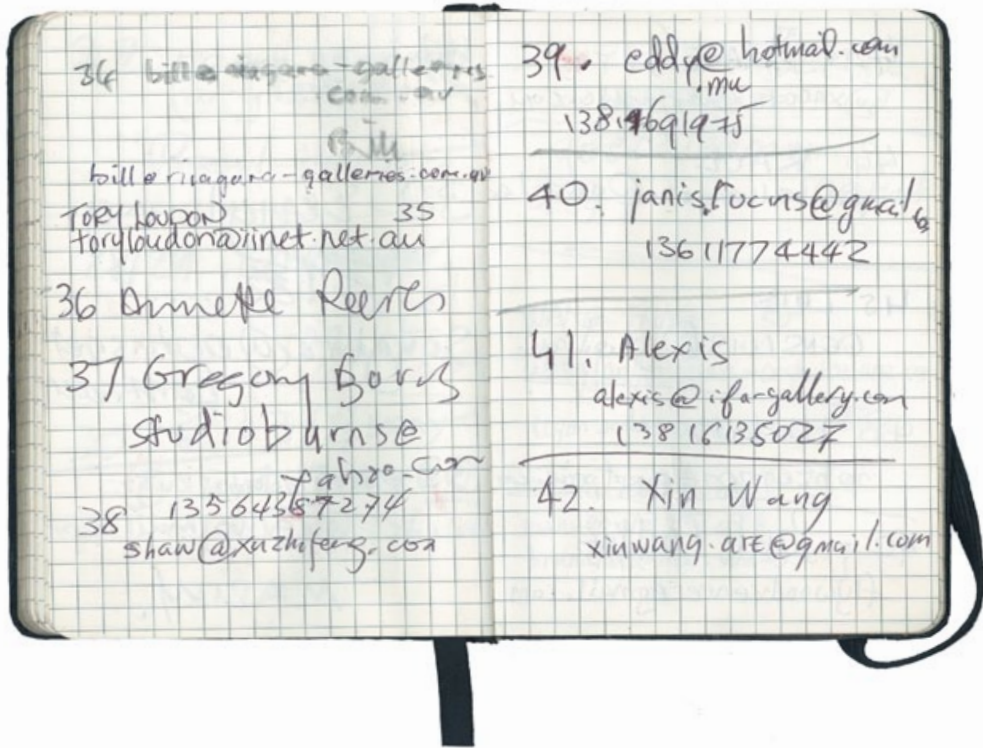 34 bill@niagara-galleries
com.au
Bill
bill@niagara-galleries.com.au
TORY LOUDON 35
toryloudon@iinet.net.au
36 Annette Reeves
37 Gregory Burns
studioburns@
yahoo.com
38 13564387274
shaw@xuzhifeng.com
39. eddy@hotmail.com
.mu
40. janis.fucins@gmail
13611774442
41. Alexis
alexis@ifa-gallery.com
13816135027
42. Xin Wang
xinwang.art@gmail.com